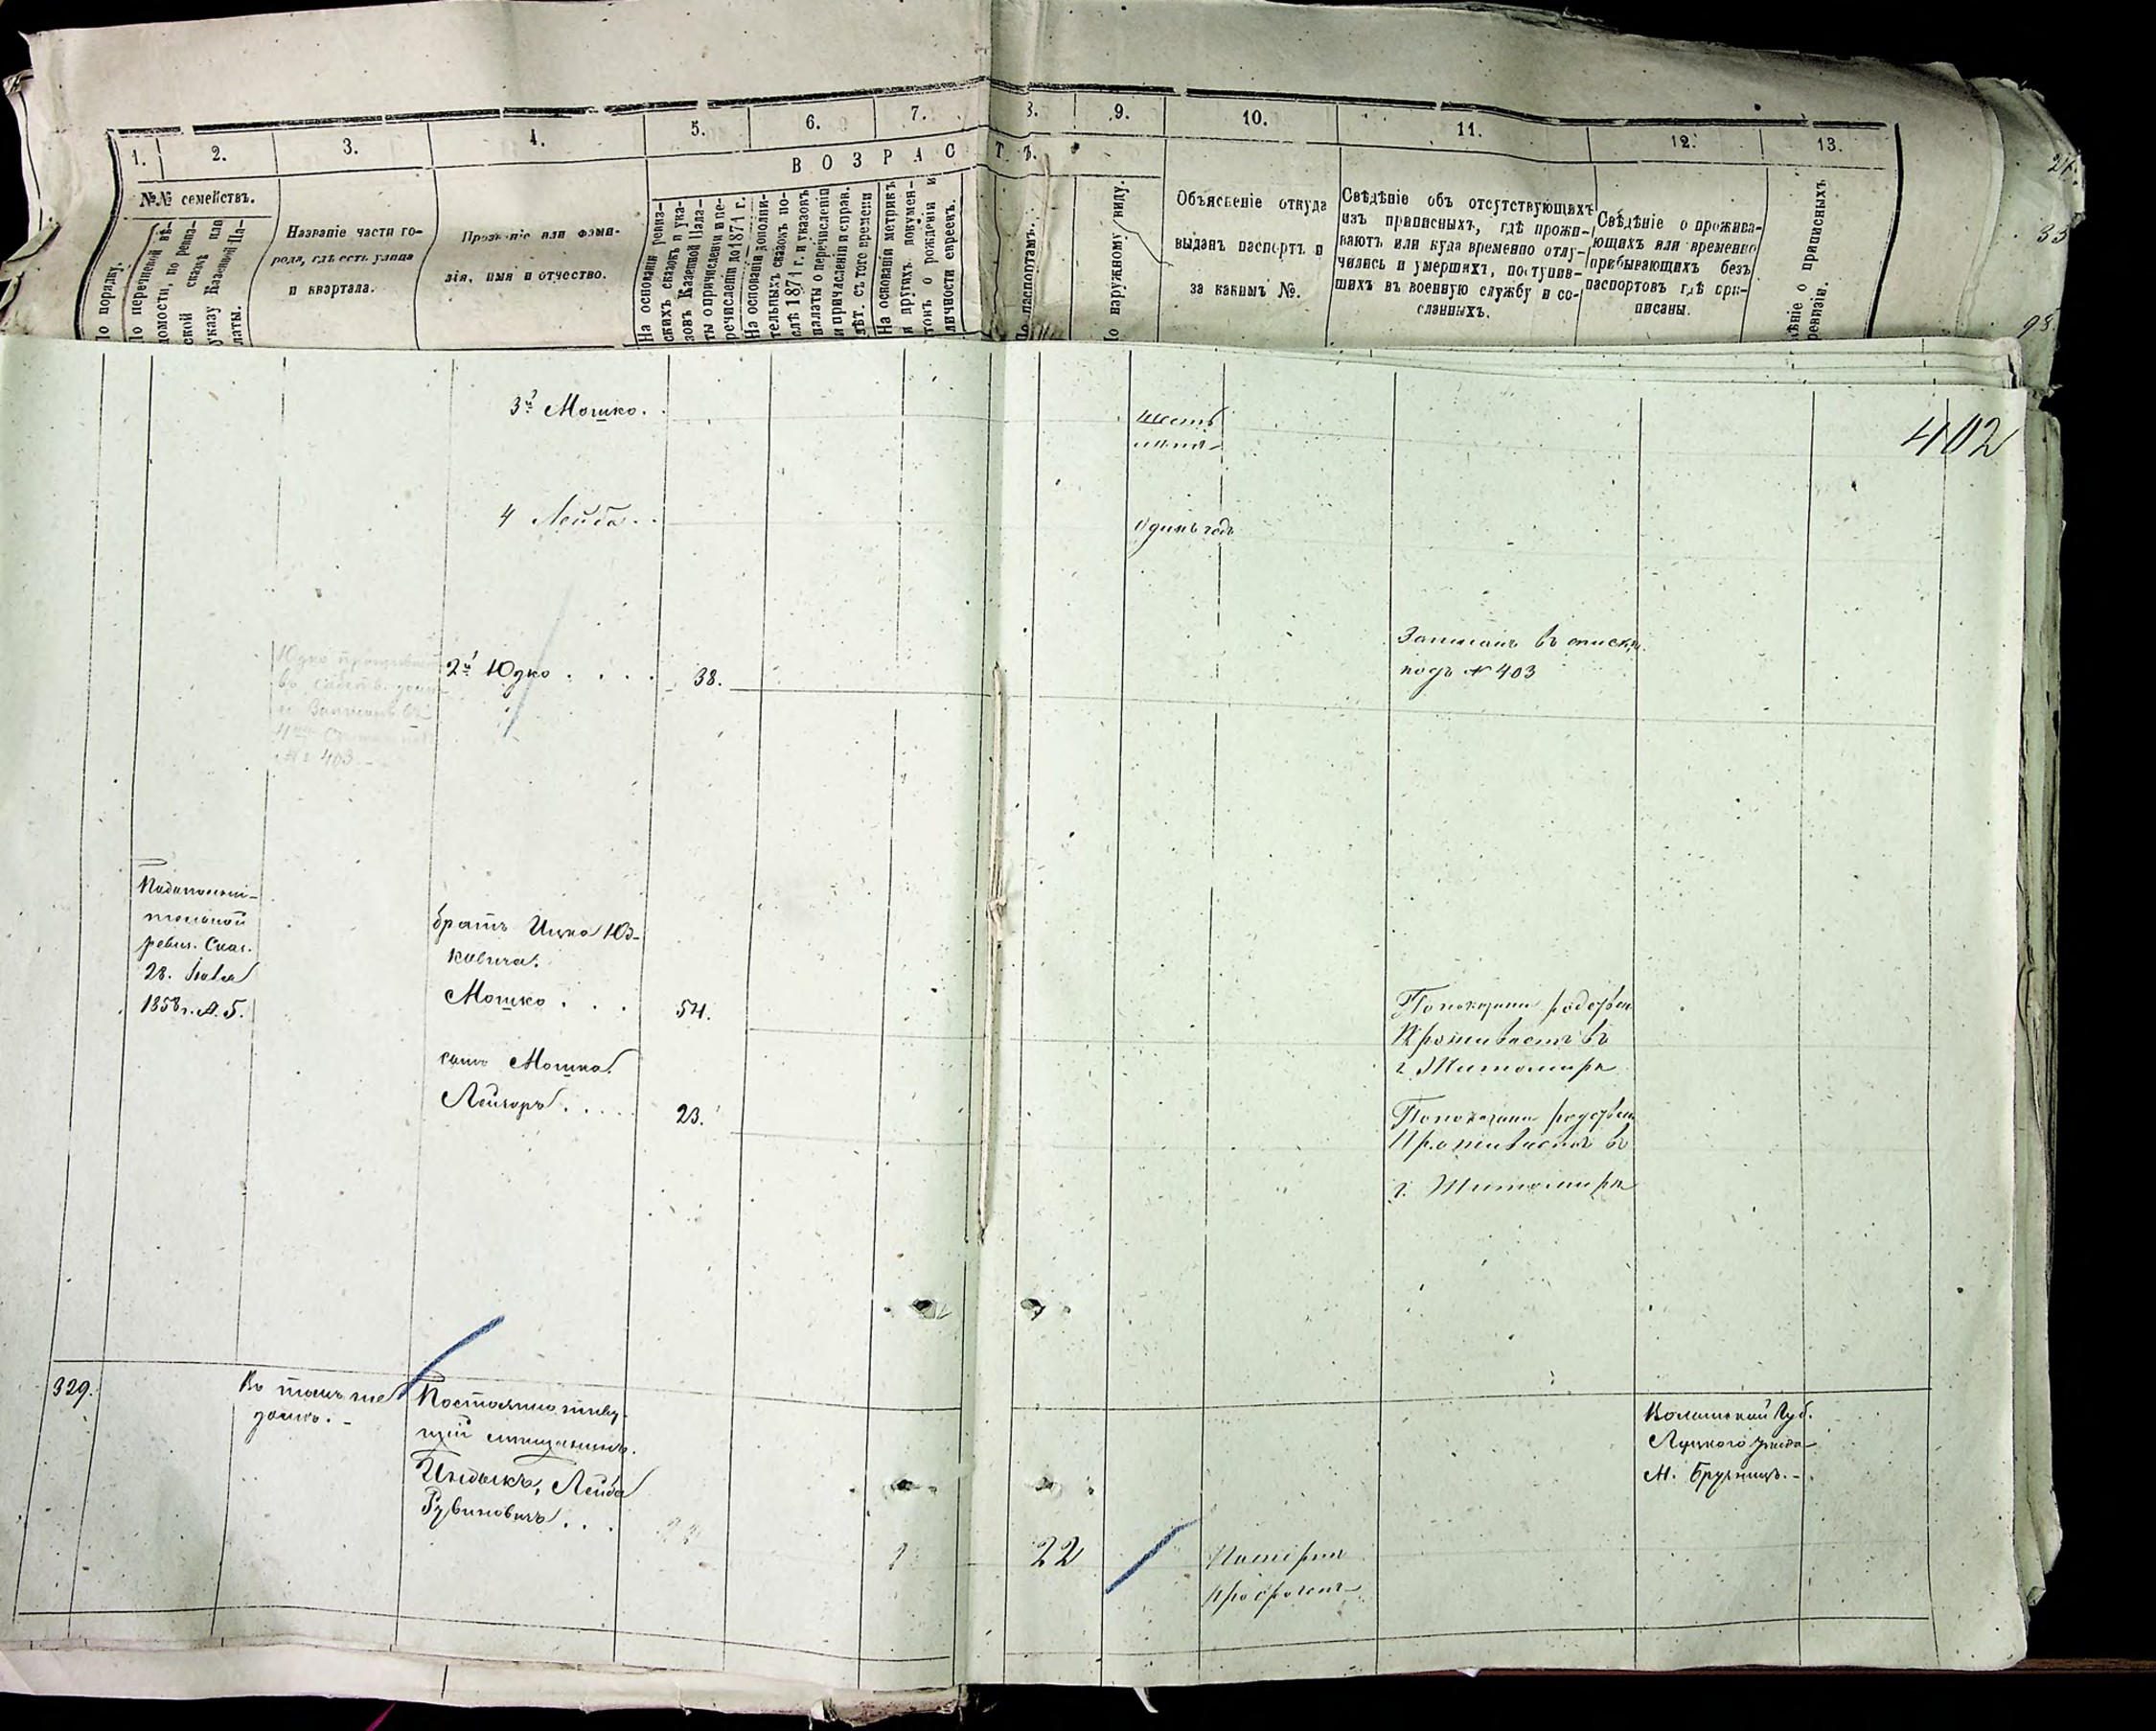 1. 2. 3. 4. 5. 6. 7. 8. 9. 10. 11. 12. 13.
ВОЗРАСТЪ.
№№ семействъ.
По порядку.
По перечневой вѣ-
домости, по ревиз-
ской сказкѣ или
указу Казенной Па-
латы.
Названіе части го-
рода, гдѣ есть улица
и квартала.
Прозваніе или фами-
лія, имя и отчество.
На основаніи ревиз-
скихъ сказокъ и ука-
зовъ Казенной Пала-
ты о причисленіи и пе-
речисленіи до 1871 г.
На основаніи дополни-
тельныхъ сказокъ по-
слѣ 1871 г. и указовъ
палаты о перечисленіи
и причисленіи и справ.
лѣт. съ того времени
На основаніи метрикъ
и другихъ докумен-
товъ о рожденіи и
личности евреевъ.
По паспортамъ.
По наружному виду.
Объясненіе откуда
выданъ паспортъ и
за какимъ №.
Свѣдѣніе объ отсутствующихъ
изъ приписныхъ, гдѣ прожи-
ваютъ или куда временно отлу-
чились и умершихъ, поступив-
шихъ въ военную службу и со-
сланныхъ.
Свѣдѣніе о прожива-
ющихъ или временно
прибывающихъ безъ
паспортовъ гдѣ при-
писаны.
о приписныхъ
ревизіи.
402
3й Мошко.
шесть
лѣтъ
4 Лейба..
Одинъ годъ
Юдко проживаетъ
въ
и Записанъ въ
№ 403
2й Юдко....
38.
Записанъ въ списку
подъ № 403
По дополни-
тельной
ревиз. Сказ.
28. Іюля
1858 г. А. Б.
братъ Ицка Юд-
ковича.
Мошко...
54.
По показанію родствен
Проживаетъ въ
г. Житомирѣ
сынъ Мошка.
Лейзоръ.....
23.
По показанію родствен
Проживаетъ въ
г. Житомирѣ
329.
Въ томъ же
домѣ.-
Постоянно живу-
щій мѣщанинъ.
Индыкъ, Лейба
Рувиновичъ...
22
Паспортъ
просроченъ
Волынской Губ.
Луцкого уѣзда
М.